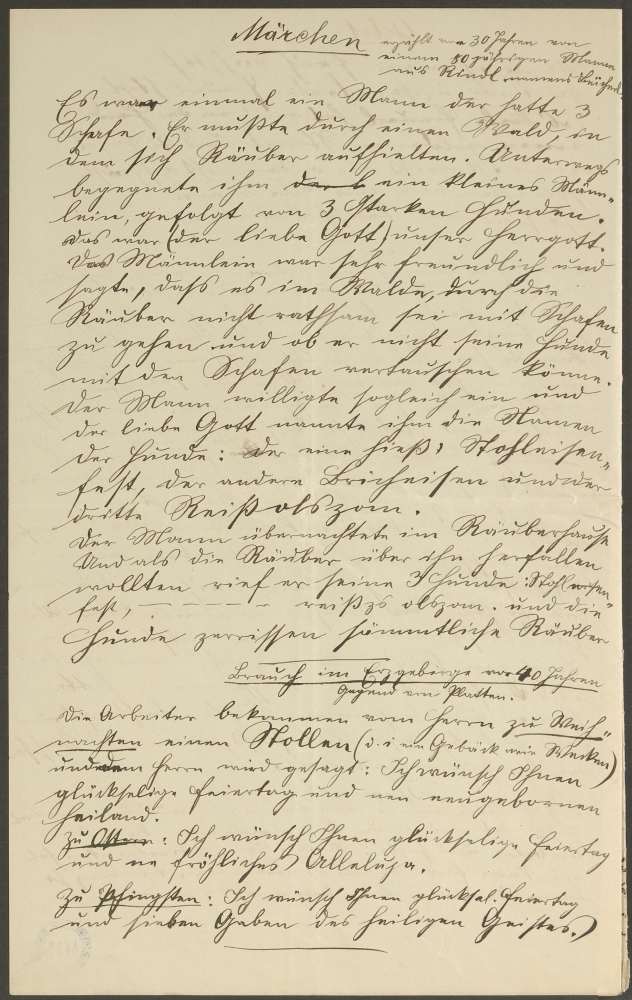 Märchen
erzählt vor 30 Jahren von
einem 80 jährigen Manne
aus Rindl, namens
Es war einmal ein Mann der hatte 3
Schafe. Er mußte durch einen Wald, in
dem sich Räuber aufhielten. Unterwegs
begegnete ihm ein kleines Männ-
lein, gefolgt von 3 starken Hunden.
Das war (der liebe Gott) unser Herrgott.
Das Männlein war sehr freundlich und
sagte, dass es im Walde, durch die
Räuber nicht rathsam sei mit Schafen
zu gehen und ob er nicht seine Hunde
mit den Schafen vertauschen könne.
Der Mann willigte sogleich ein und
der liebe Gott nannte ihm die Namen
der Hunde: Der eine hieß: Stohleisen-
fest, der andere Bricheisen und der
dritte Reißolszom.
Der Mann übernachtete im Räuberhause
Und als die Räuber über ihn herfallen
wollten rief er seine 3 Hunde: Stohleisen-
fest, – – – – – – reißzs olszom. und die
Hunde zerrissen sämmtliche Räuber
Brauch im Erzgebirge vor 40 Jahren
Gegend von Platten.
Die Arbeiter bekommen vom Herrn zu Weih-
nachten einen Stollen (d. i ein Gebäck wie Wecken)
und dem Herrn wird gesagt: Ich wünsch Ihnen
glückselige Feiertag und nen neugebornen
Heiland.
Zu Ostern: Ich wünsch Ihnen glückselige Feiertag
und ne fröhliches Alleluja.
Zu Pfingsten: Ich wünsch Ihnen glücksel. Feiertag
und sieben Gaben des heiligen Geistes.)